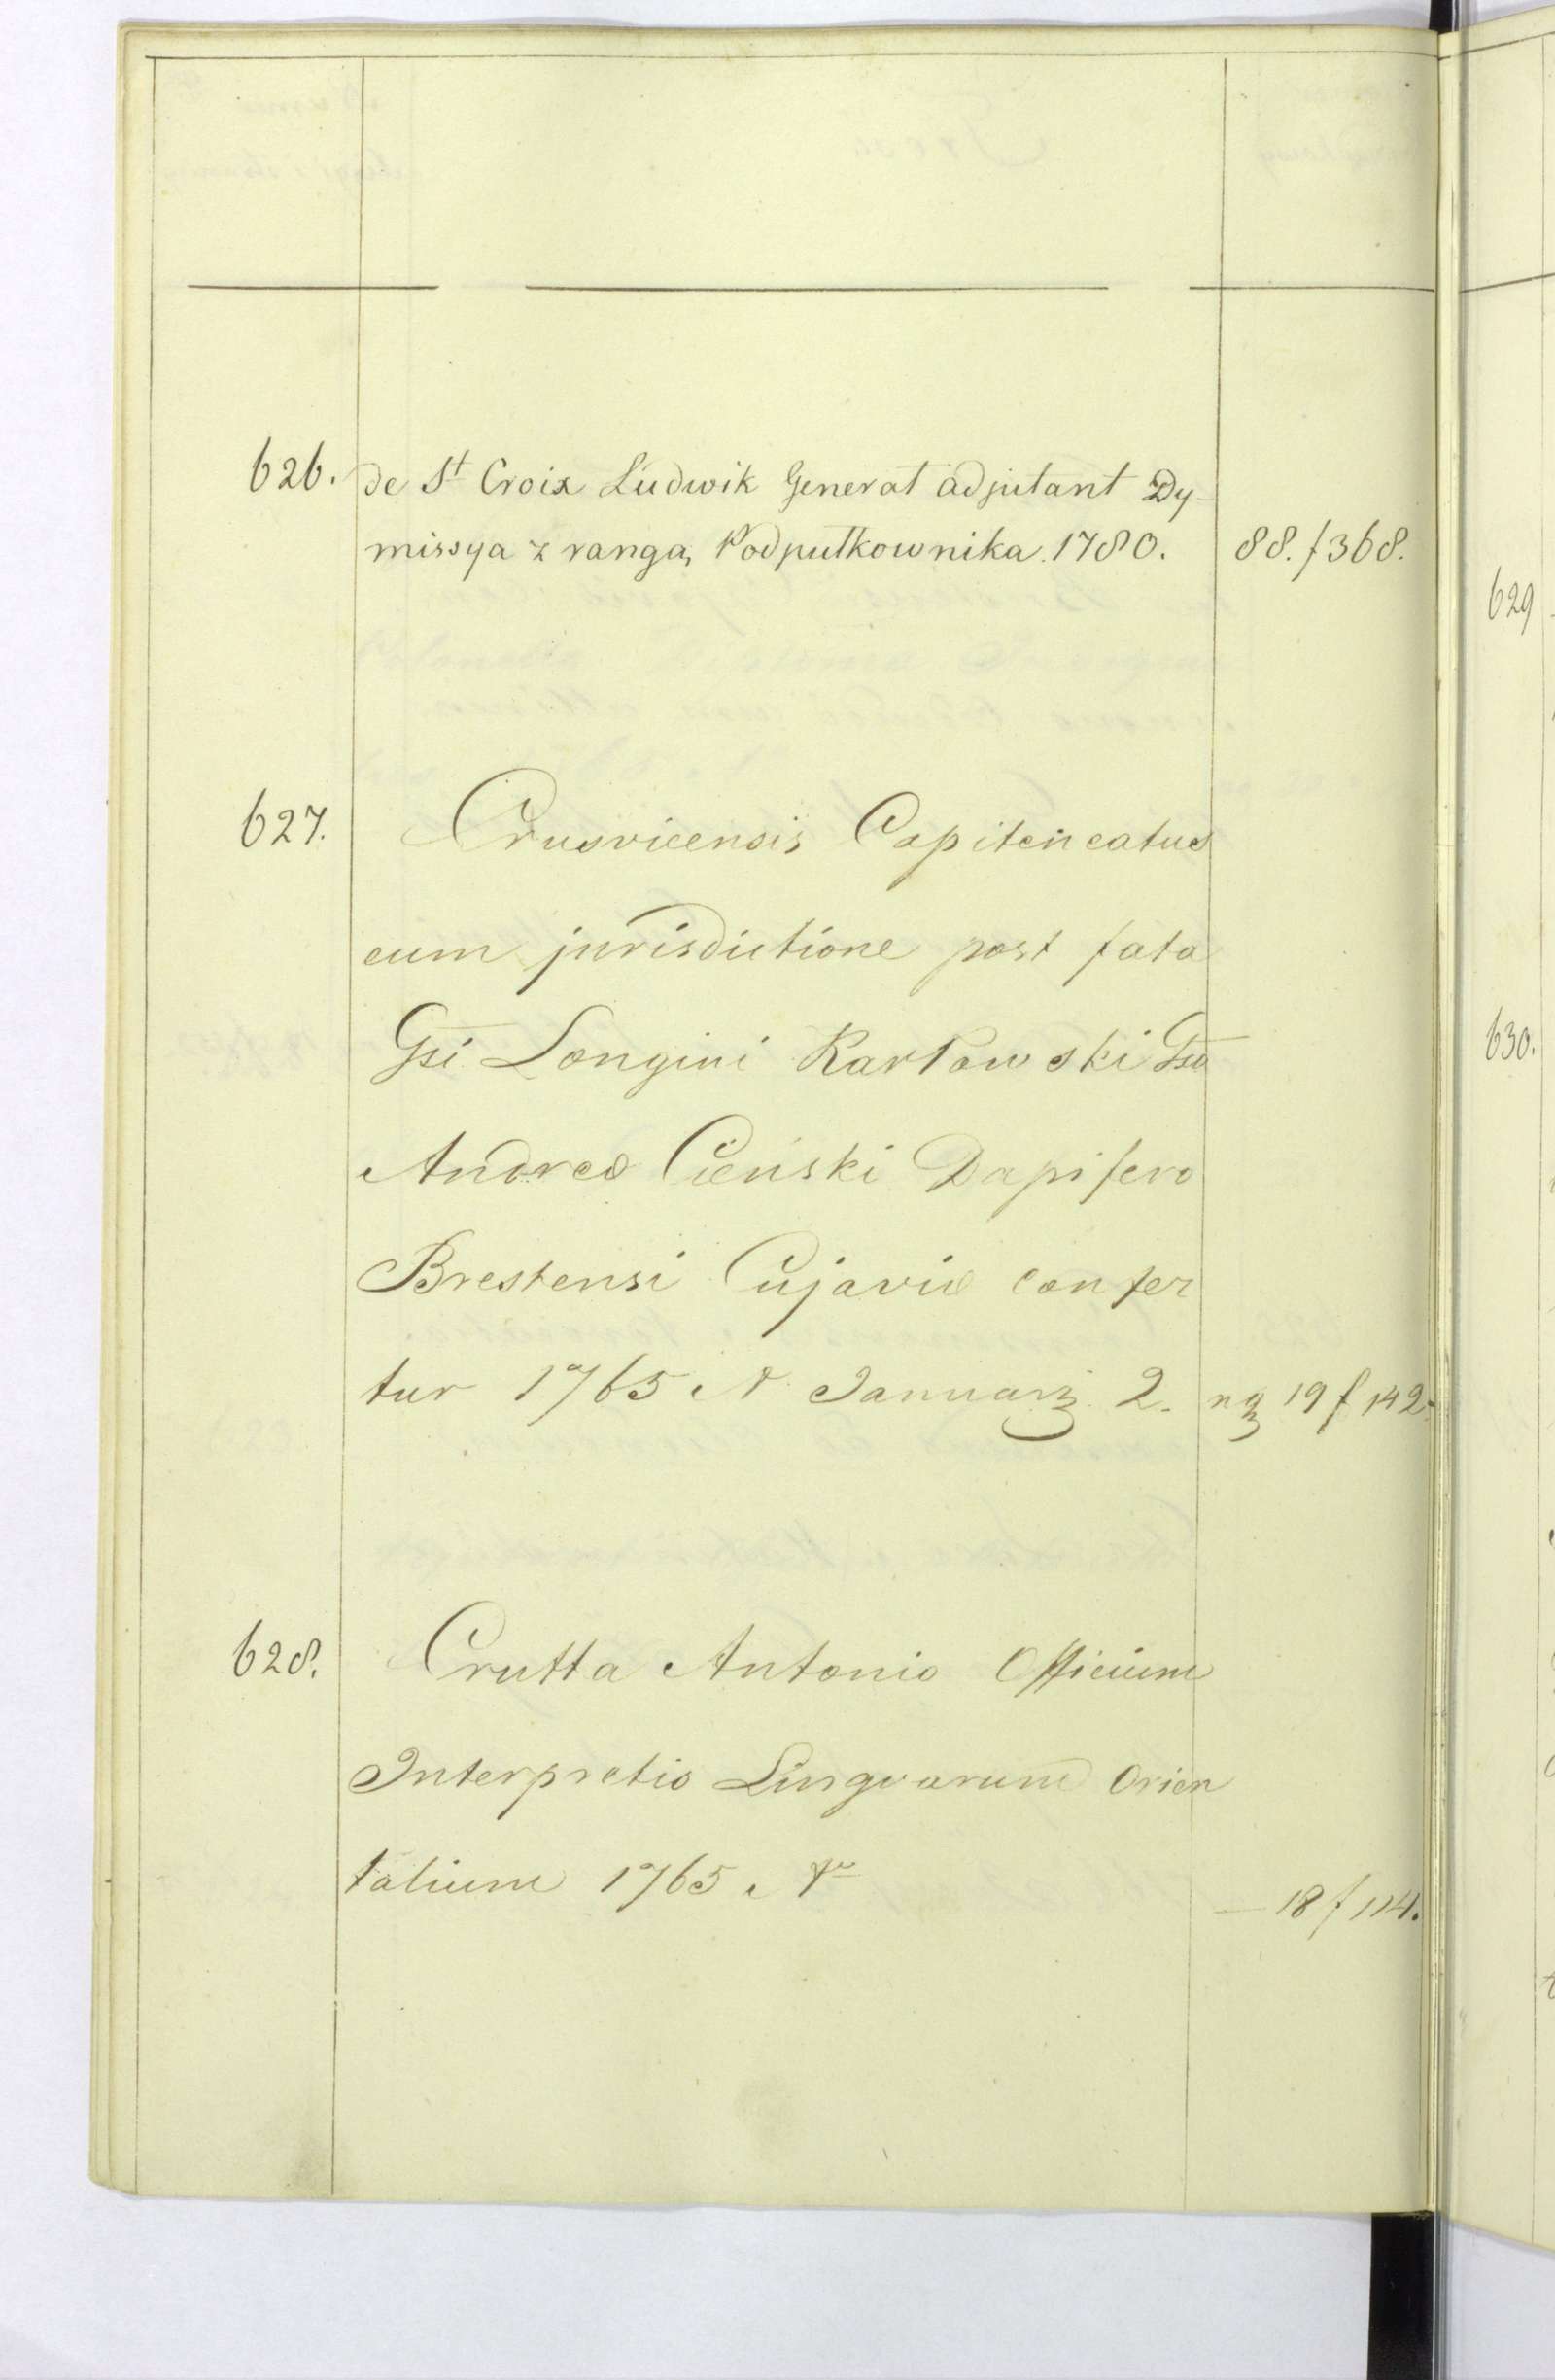 626. de St Croix Ludwik Generał adjutant Dy-
missya z rangą Podpułkownika. 1780. 88. f 368.
627. Crusvicensis Capiteneatus
cum jurisdictione post fata
Gsi Longini Karłowski Gso
Andreæ Cieński Dapifero
Brestensi Cujaviæ confer
tur 1765 A Januarij 2. nq 19 f 142.
628. Crutta Antonio Officium
Interpretis Lingvarum Orien
talium 1765
— 18 f 114.
629
630.